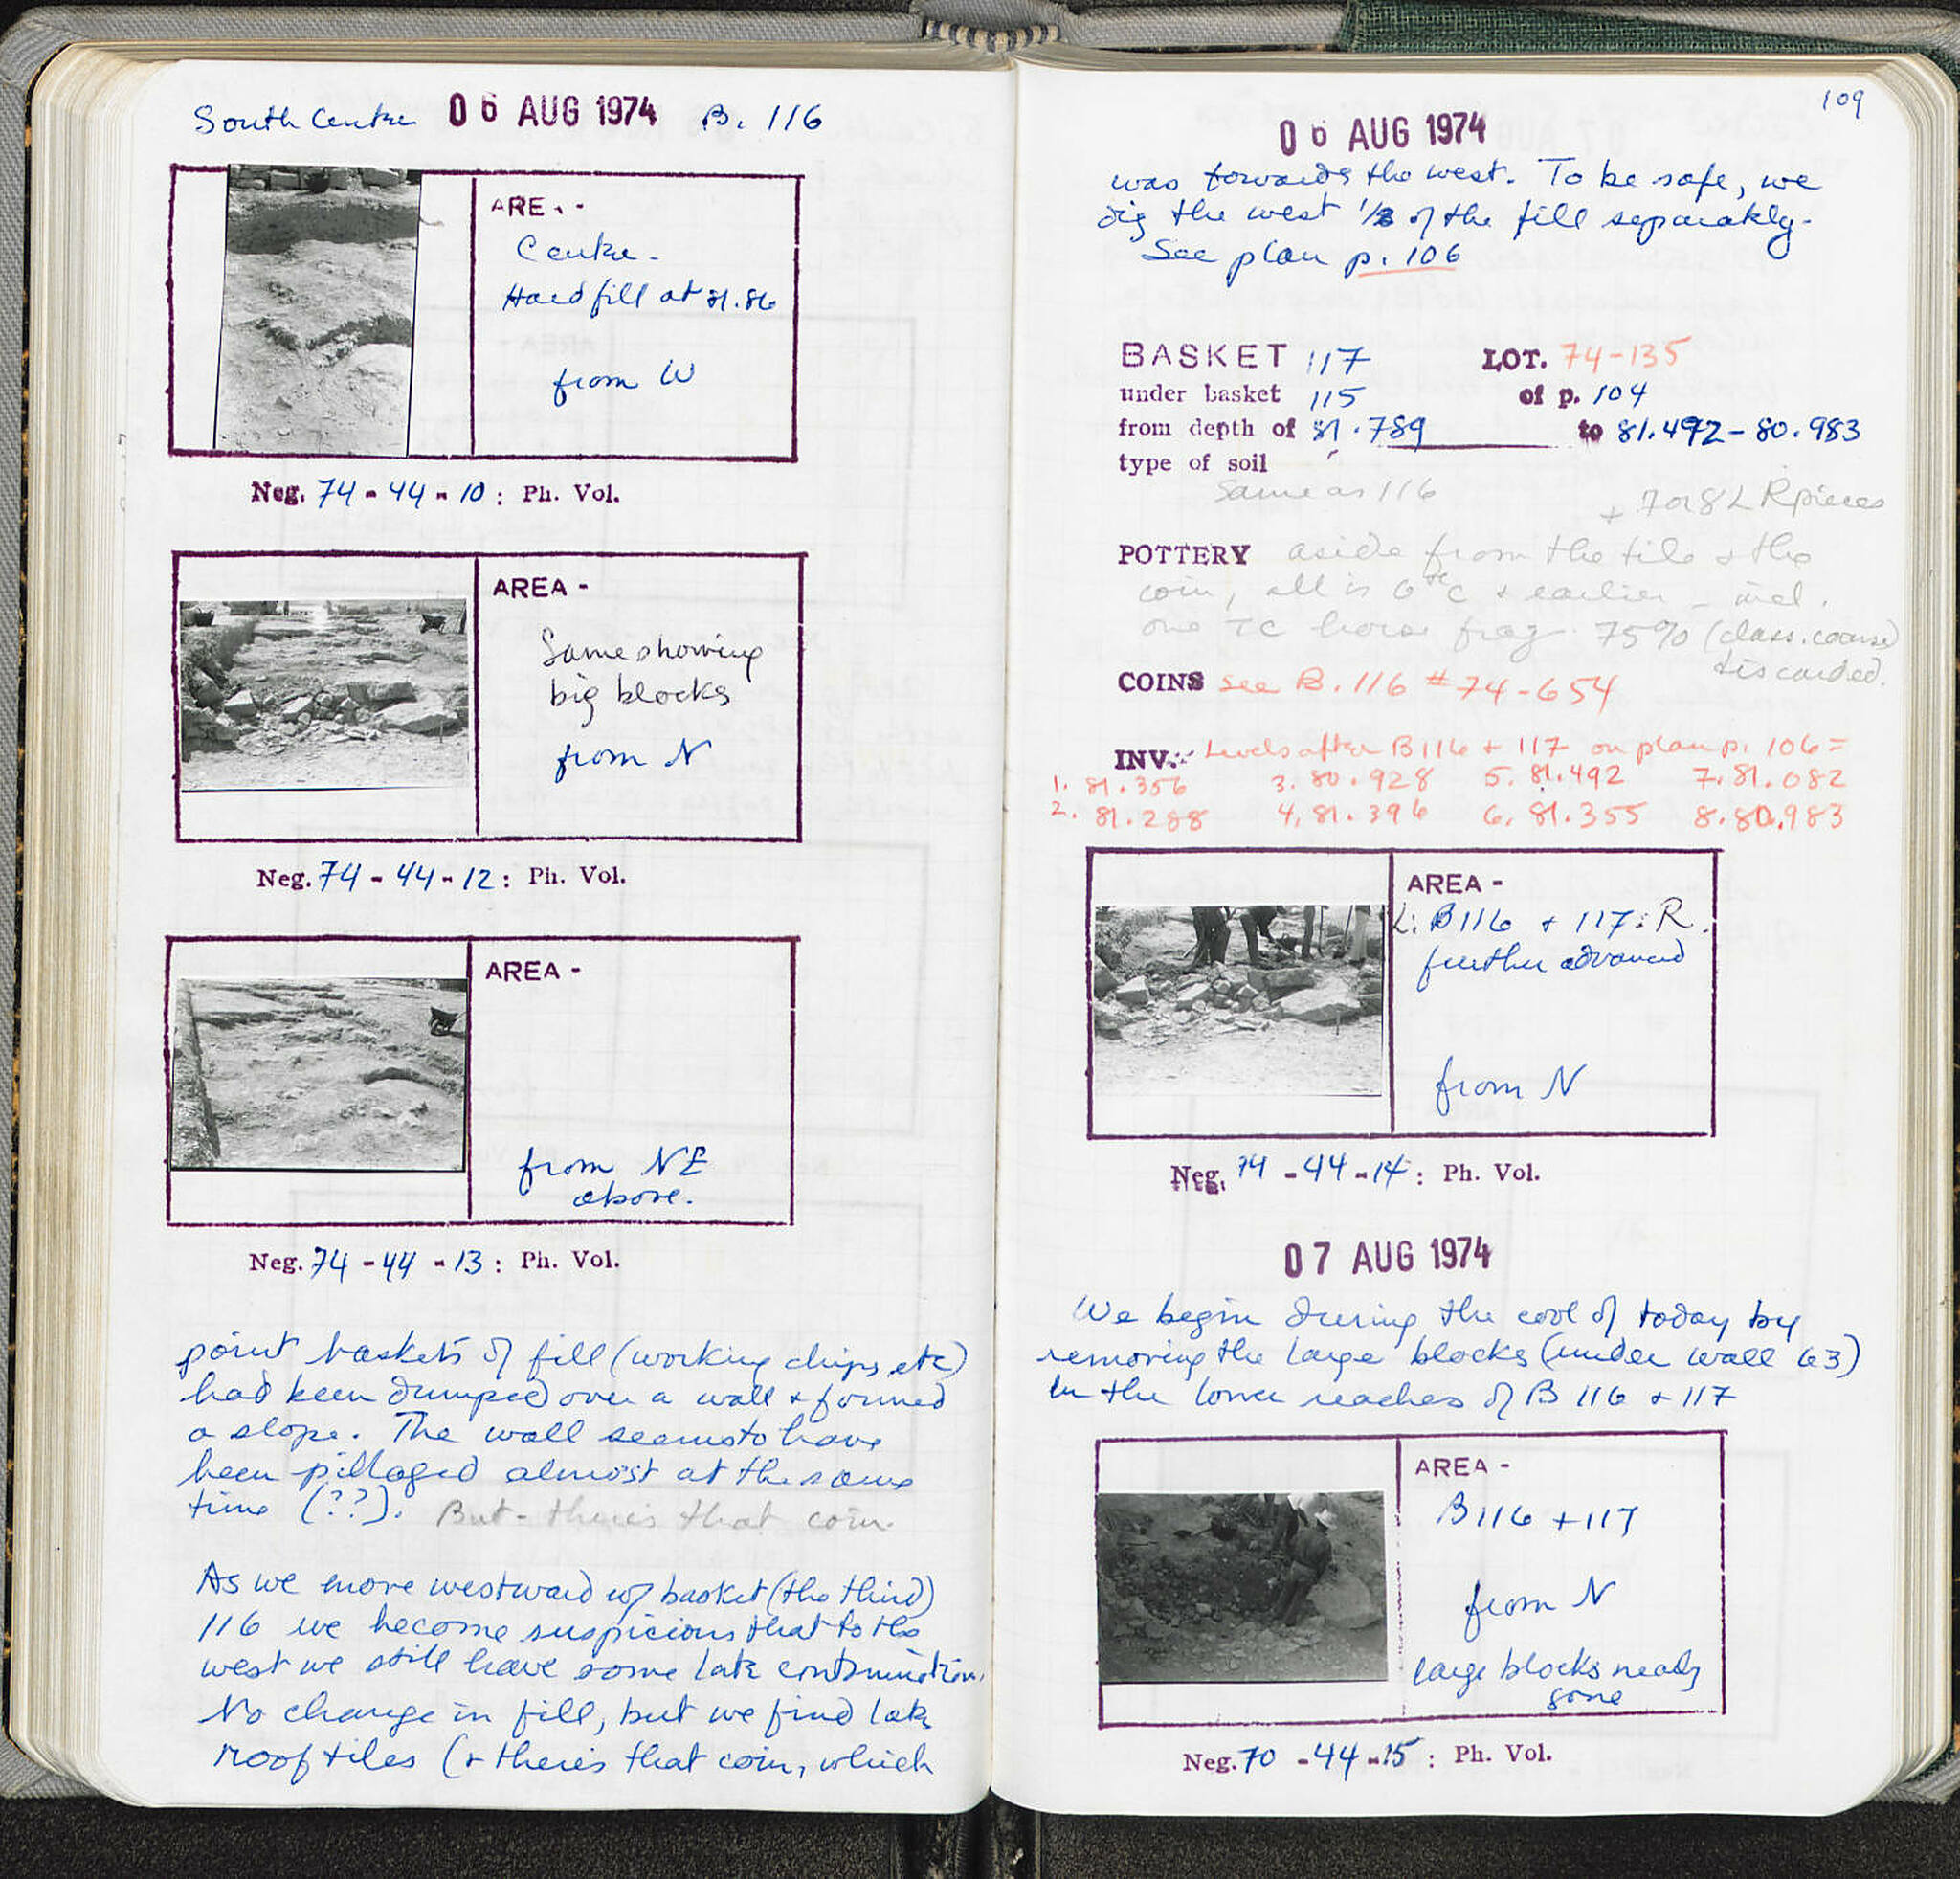 South Centre 06 AUG 1974 B. 116
ARE -
Centre.
Hard fill at 81.86
from W
Neg. 74 - 44 - 10 : Ph. Vol.
AREA -
Same showing
big blocks
from N
Neg. 74 - 44 - 12 : Ph. Vol.
AREA -
from NE
above.
Neg. 74 - 44 - 13 : Ph. Vol.
point baskets of fill (working chips, etc)
had been dumped over a wall & formed
a slope. The wall seems to have
been pillaged almost at the same
time (??). But - there's that coin.
As we move westward w/ basket (the third)
116 we become suspicious that to the
west we still have some late contamination.
No change in fill, but we find late
roof tiles (& there's that coin, which
109
06 AUG 1974
was towards the west. To be safe, we
dig the west 1/3 of the fill separately.
See plan p. 106
BASKET 117 LOT. 74-135
under basket 115 of p. 104
from depth of 81.789 to 81.492 - 80.983
type of soil
Same as 116
+ 7 or 8 L R pieces
POTTERY aside from the tile & the
coin, all is 6th c & earlier - incl.
one TC horse frag. 75% (class. coarse)
discarded.
COINS see B. 116 # 74-654
INV. Levels after B116 + 117 on plan p. 106 =
1. 81.356 3. 80.928 5. 81.492 7. 81.082
2. 81.288 4. 81.396 6. 81.355 8. 80.983
AREA -
L: B116 + 117: R.
further advanced
from N
Neg. 74 - 44 - 14 : Ph. Vol.
07 AUG 1974
We begin during the cool of today by
removing the large blocks (under wall 63)
in the lower reaches of B 116 + 117
AREA -
B116 + 117
from N
large blocks nearly
gone
Neg. 70 - 44 - 15 : Ph. Vol.